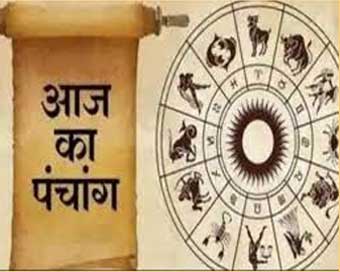 आज
का
पंचांग